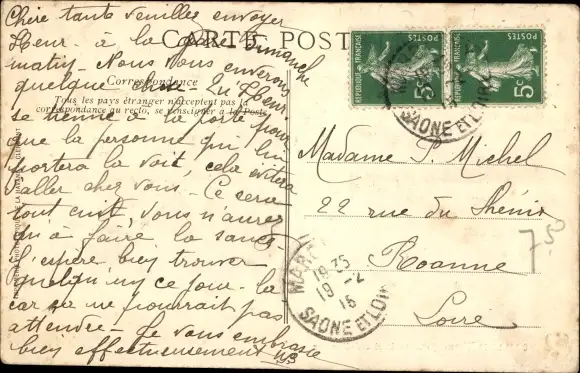 Chère tante veuillez envoyer
Fleur à la gare Dimanche
matin. Nous vous enverrons
quelque chose. Qu Fleur
se tienne à la porte pour
que la personne qui lui
portera la voit, cela evitera
d'aller chez vous. Ce sera
tout cuit, vous n'aurez
qu'à faire la sauce.
J'espère bien trouver
quelqu'un ce jour-la
car se ne pourrait pas
attendre. Je vous embrasse
bien affectueusement
CARTE POSTALE
Correspondance
Tous les pays étranger n'acceptent pas la
correspondance au recto, se renseigner à la Poste
REPUBLIQUE FRANÇAISE
POSTES
5c
REPUBLIQUE FRANÇAISE
POSTES
5c
SAONE ET LOIRE
Madame P. Michel
22 rue du Phénix
Roanne
Loire
7.50
19 35
19 -2
16
SAONE ET LOIRE